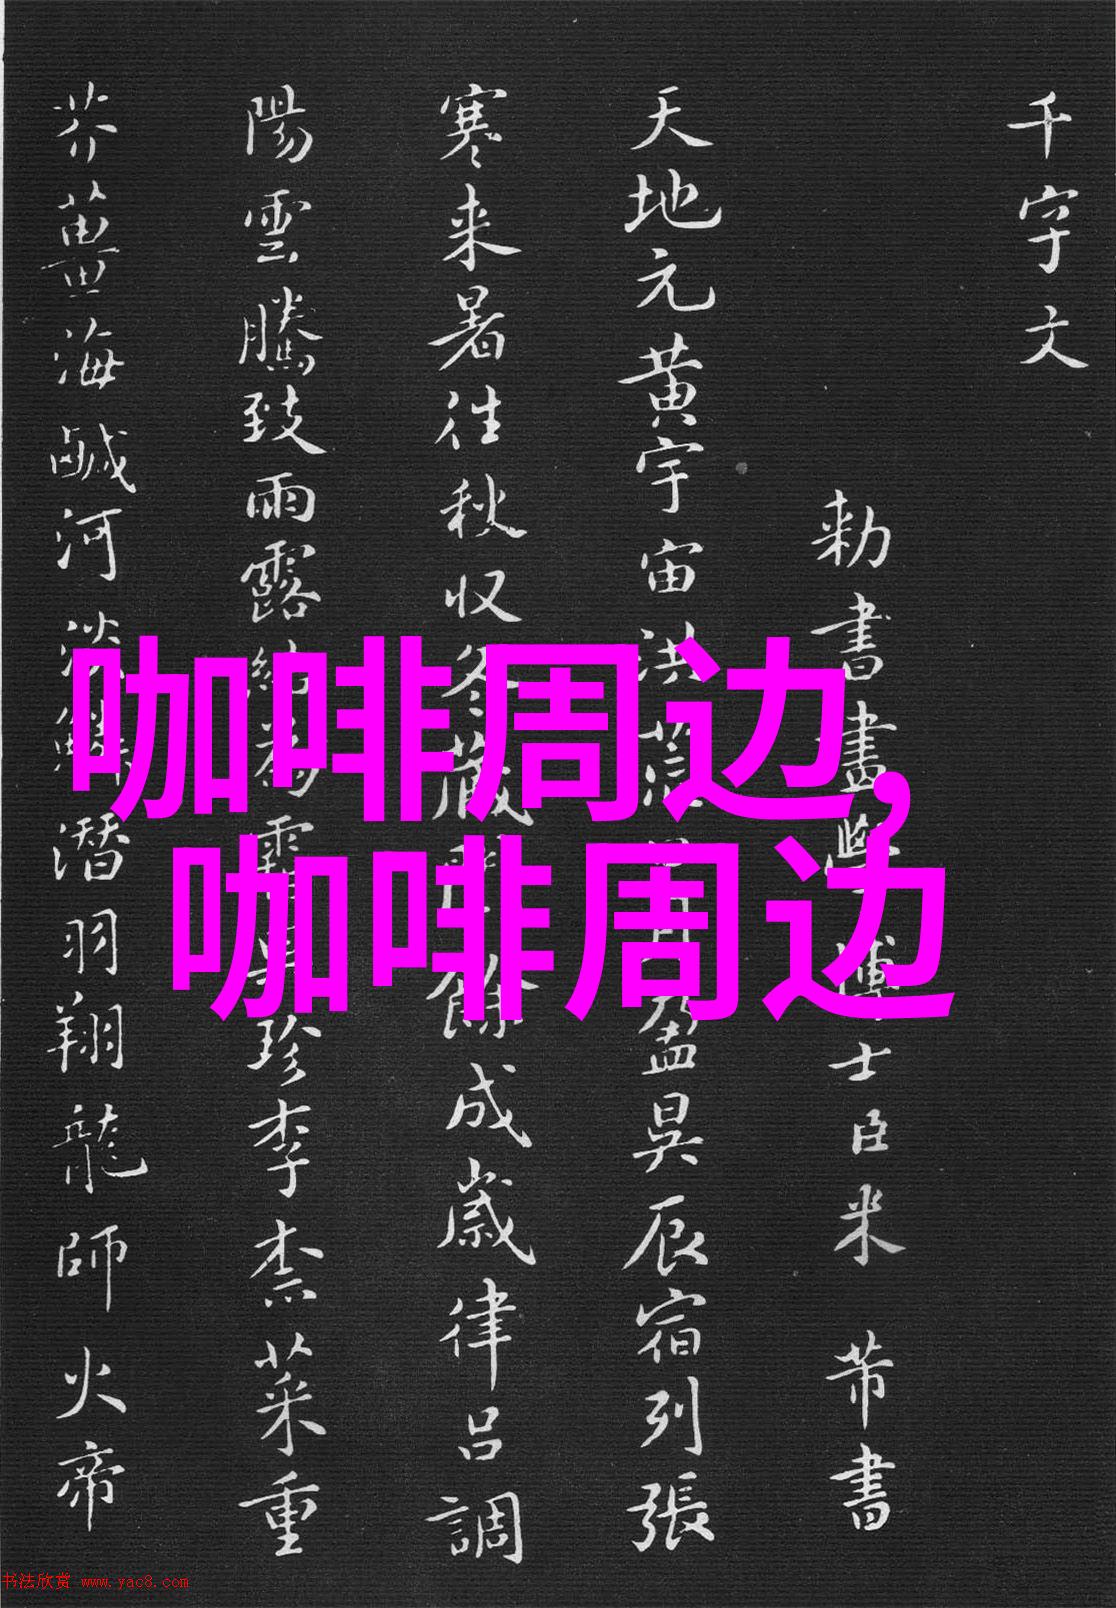 千字文
勅書畫學博士臣米芾書
天地元黄宇宙洪荒月盈昃辰宿列張
寒来暑往秋収冬藏餘成歳律吕調
陽雲騰致雨露結為霜果珍李柰菜重
芥薑海鹹河淡鱗潜羽翔龍師火帝
咖啡周边,
咖啡周边
书法欣赏 www.yac8.com